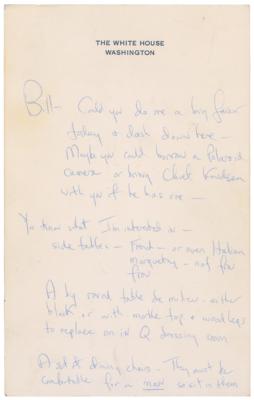 THE WHITE HOUSE
WASHINGTON
Bill— Could you do me a big favor
today & dash down here —
Maybe you could borrow a Polaroid
camera or bring
with you if he has one —
You know what I'm interested in —
side tables — French — or even Italian
marquetry — not frou
frou
A big round table de milieu — either
black or with marble top & wood legs
to replace one in Q dressing room
A set of dining chairs — They must be
comfortable for a man so sit in them